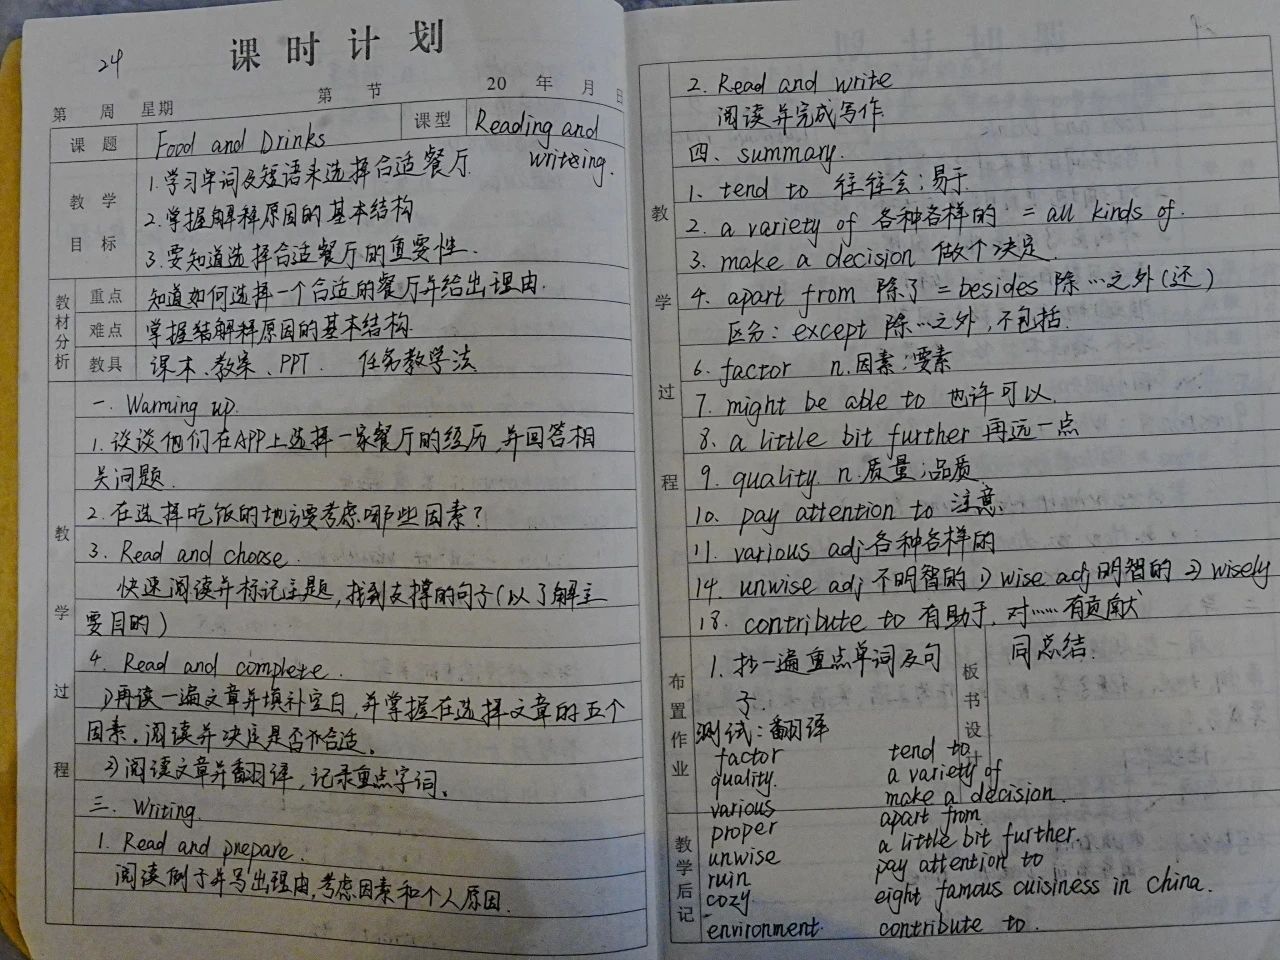 24
课时计划
第 周 星期 第 节 20 年 月 日
课题 Food and Drinks 课型 Reading and writeing.
教学目标
1.学习单词及短语来选择合适餐厅.
2.掌握解释原因的基本结构
3.要知道选择合适餐厅的重要性.
教材分析
重点 知道如何选择一个合适的餐厅并给出理由.
难点 掌握结解释原因的基本结构.
教具 课本、教案、PPT. 任务教学法
教学过程
一. Warming up.
1.谈谈他们在APP上选择一家餐厅的经历,并回答相
关问题.
2.在选择吃饭的地方要考虑哪些因素?
3. Read and choose.
快速阅读并标记主题,找到支撑的句子(以了解主
要目的)
4. Read and complete.
1)再读一遍文章并填补空白,并掌握在选择文章的五个
因素.阅读并决定是否合适.
2)阅读文章并翻译,记录重点字词.
三. Writing.
1. Read and prepare.
阅读例子并写出理由,考虑因素和个人原因.
教学过程
2. Read and write
阅读并完成写作
四、summary.
1. tend to 往往会;易于.
2. a variety of 各种各样的 = all kinds of.
3. make a decision 做个决定.
4. apart from 除了 = besides 除…之外(还)
区分: except 除…之外,不包括.
6. factor n.因素;要素
7. might be able to 也许可以.
8. a little bit further 再远一点
9. quality n.质量;品质
10. pay attention to 注意.
11. various adj.各种各样的
14. unwise adj 不明智的 1) wise adj 明智的 2) wisely
18. contribute to 有助于,对……有贡献
布置作业
1.抄一遍重点单词及句
子.
板书设计
同总结.
测试:翻译
factor tend to
quality. a variety of
various make a decision.
教学后记
proper apart from.
unwise a little bit further.
ruin pay attention to
cozy eight famous cuisiness in china.
environment. contribute to.